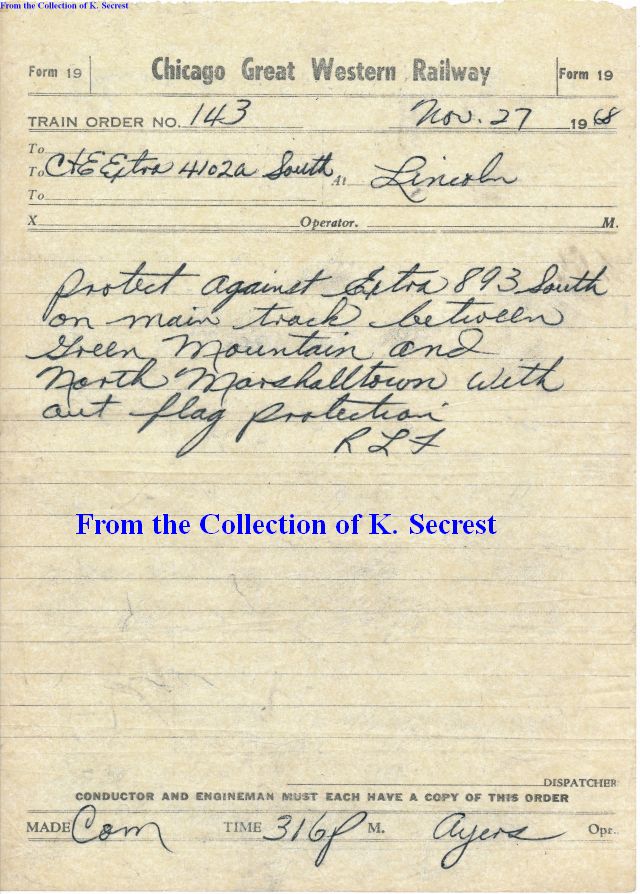 From the Collection of K. Secrest
Form 19 Chicago Great Western Railway Form 19
TRAIN ORDER NO. 143 Nov. 27 1968
To
To C&E Extra 4102A South At Lincoln
To
X Operator. M.
protect against Extra 893 South
on main track between
Green Mountain and
North Marshalltown with
out flag protection
R L F
From the Collection of K. Secrest
DISPATCHER
CONDUCTOR AND ENGINEMAN MUST EACH HAVE A COPY OF THIS ORDER
MADE Com TIME 316 P M. Ayers Opr.